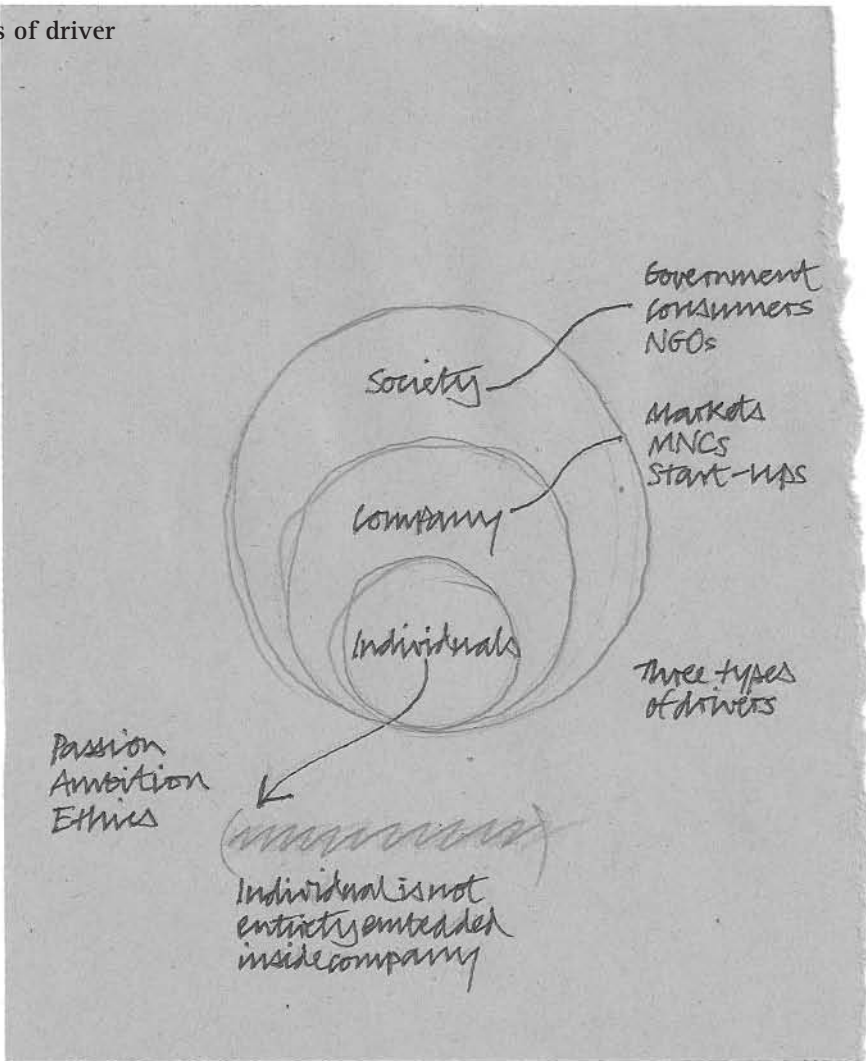 s of driver
Government
Consumers
NGOs
Society
Markets
MNCs
Start-ups
Company
Individuals
Three types
of drivers
Passion
Ambition
Ethics
Individual is not
entirely embedded
inside company